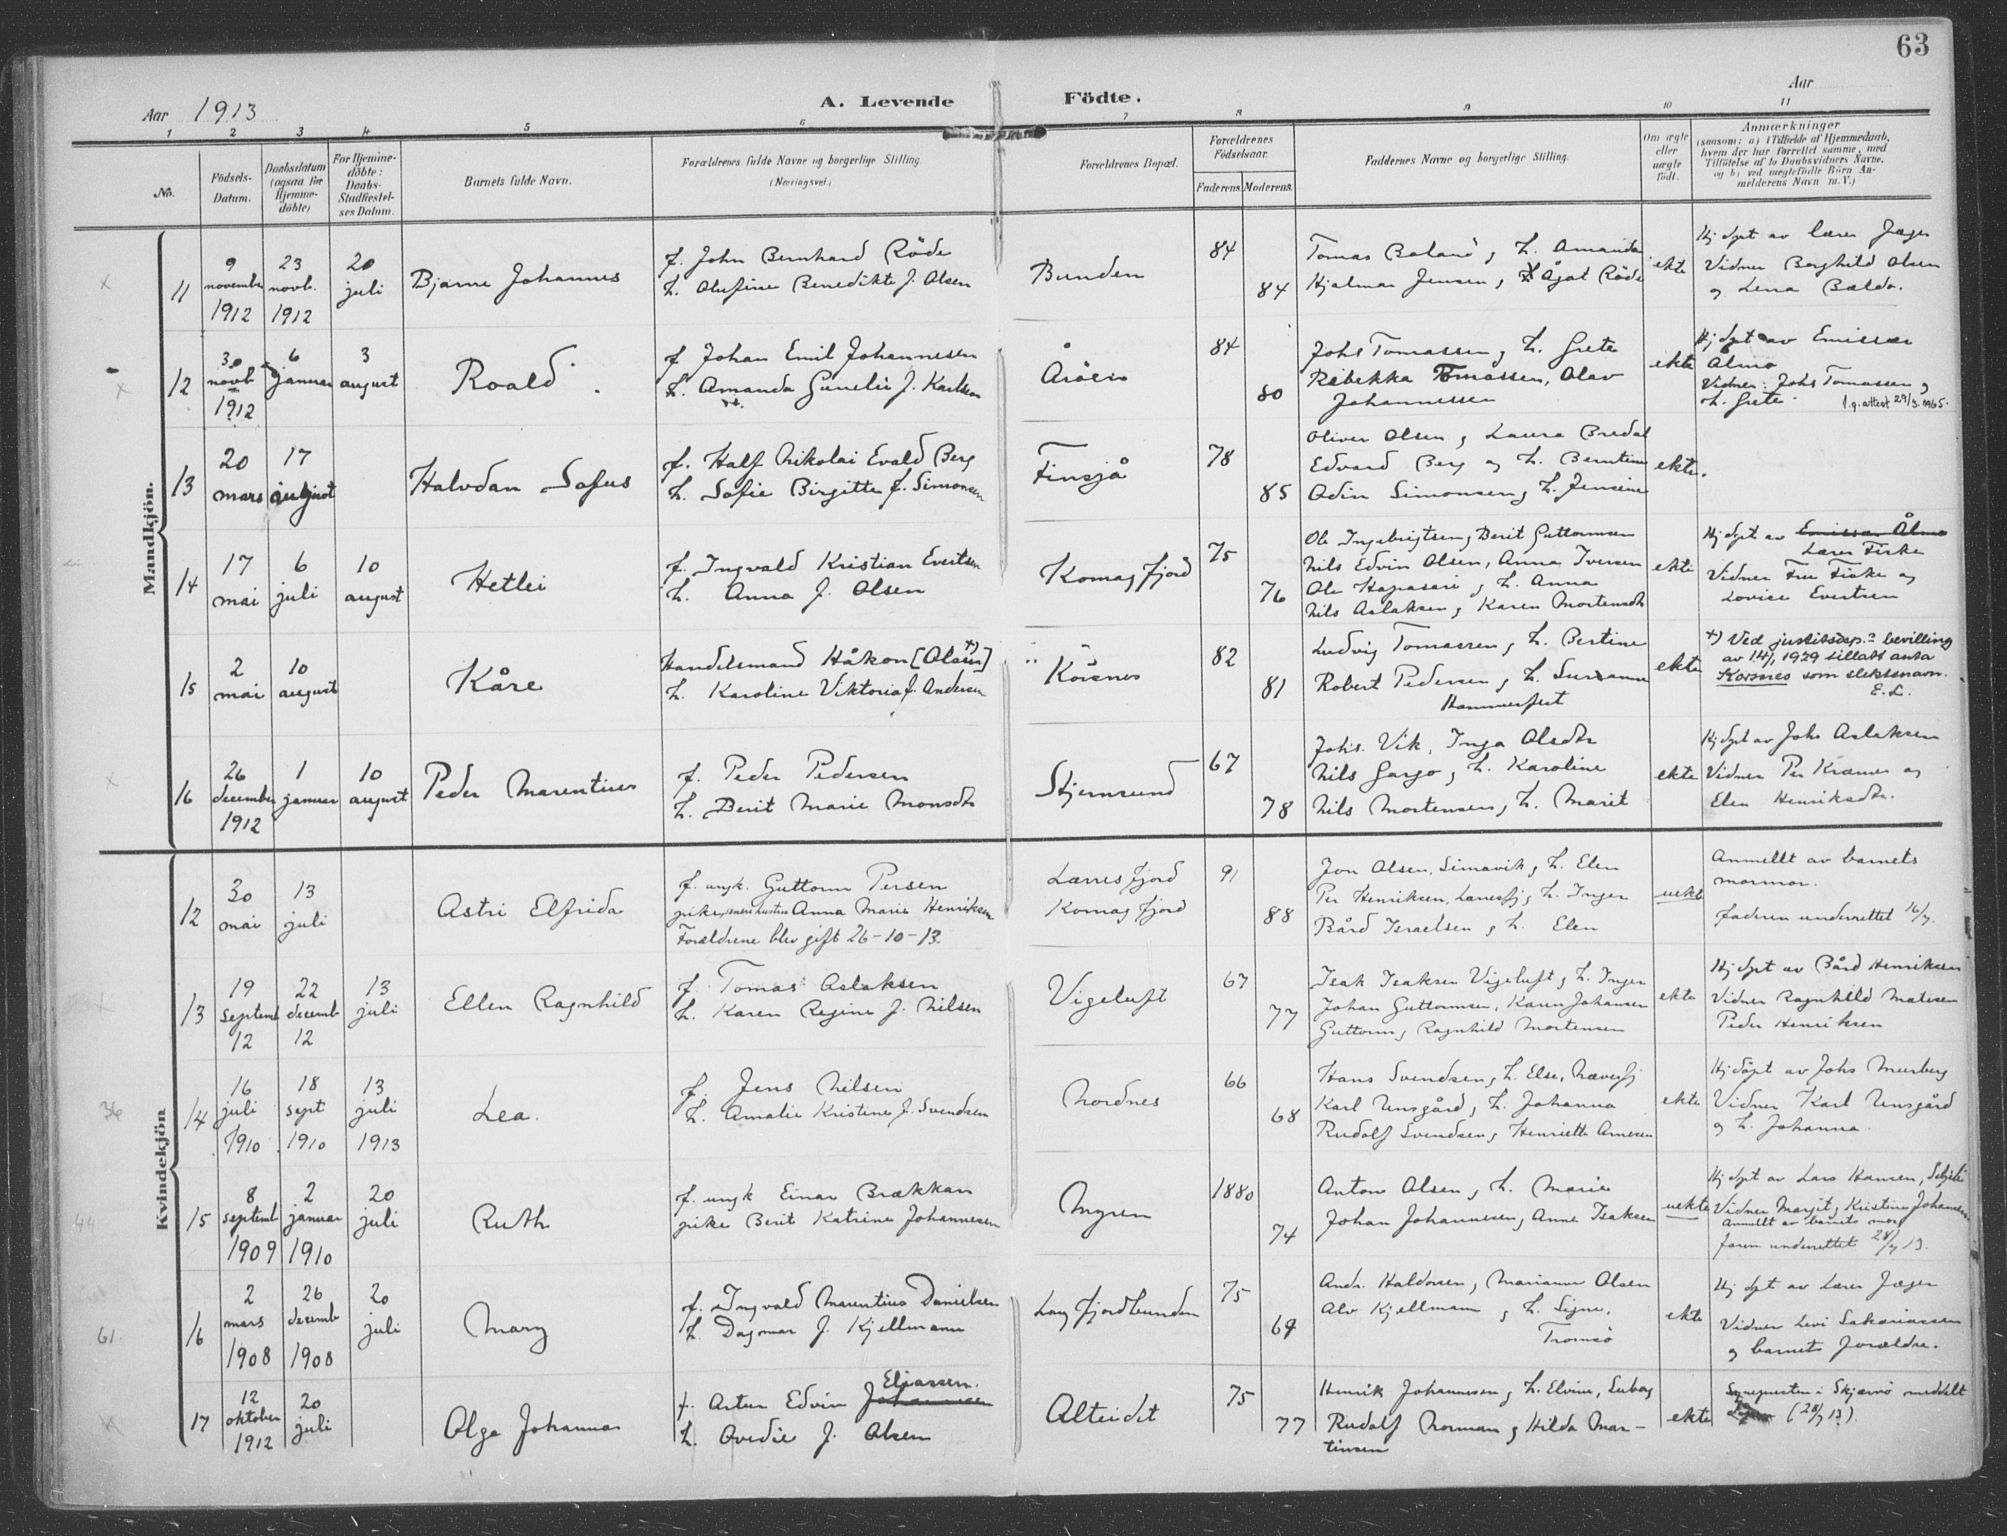 63
Aar 1913
A. Levende Födte.
Aar
1 2 3 4 5 6 7 8 9 10 11
No.
Födsels-Datum.
Daabsdatum (ogsaa for Hjemmedöbte)
For Hjemmedöbte: Daabs-Stadfæstelses Datum.
Barnets fulde Navn.
Forældrenes fulde Navne og borgerlige Stilling.
(Næringsvei.)
Forældrenes Bopæl.
Forældrenes Födselsaar.
Faderens. Moderens.
Faddernes Navne og borgerlige Stilling.
Om ægte eller uægte födt.
Anmærkninger
(saasom: a) i Tilfælde af Hjemmedaab, hvem der har forrettet samme, med Tilföielse af to Daabsvidners Navne, og b) ved uægtefödte Börn Anmelderens Navn m. V.)
Mandkjön.
11
9 november 1912
23 novb. 1912
20 juli
Bjarne Johannes
f. John Bernhard Røde
h. Olufine Benedikte f. Olsen
Bunden
84
84
Tomas Boland og h. Amanda
Hjalmar Jensen, Ågat Røde
ekte
Hj.døpt av lærer Jæger
Vidner Borghild Olsen
og Lena Balda.
12
30 novb 1912
6 januar
3 august
Roald
f. Johan Emil Johannesen
h. Amanda Gunelie f. Karlsen
Åröen
84
80
Johs Tomassen og h. Grete
Rebekka Tomassen, Olav
Johannessen
ekte
Hj.døpt av Emissær
Ålmo
Vidner: Johs Tomassen og
h. Grete.
f.g. attest 29/3 1965.
13
20 mars
17 august
Halvdan Sofus
f. Half Nikolai Evald Berg
h. Sofie Birgitte f. Simonsen
Finsjå
78
85
Oliver Olsen og Laura Bredal
Edvard Berg og h. Berntine
Odin Simonsen og h. Jensine
ekte.
14
17 mai
6 juli
10 august
Hetlei
f. Ingvald Kristian Evertsen
h. Anna f. Olsen
Komagfjord
75
76
Ole Ingebrigtsen, Berit Guttormsen
Nils Edvin Olsen, Anna Iversen
Ole Hapasari og h. Anna
Nils Aslaksen og Karen Mortensdtr
ekte
Hj.døpt av Emissær Ålmo
Lærer Fiske
Vidner Fru Fiske og
Lovise Evertsen
15
2 mai
10 august
Kåre
Handelsmand Håkon [Olsen] +)
h. Karoline Viktoria f. Andersen
Körsnes
82
81
Ludvig Tomassen og h. Bertine
Robert Pedersen og h. Susanne
Hammerfest
ekte
+) Ved justitsdep.s bevilling
av 14/1 1929 tillatt anta
Korsnes som slektsnavn.
E.L.
16
26 december 1912
1 januar
10 august
Peder Marentius
f. Peder Pedersen
h. Berit Marie Monsdtr
Stjernsund
67
78
Johs. Vik, Inga Olsdtr
Nils Gargo og h. Karoline
Nils Mortensen, h. Marit
ekte
Hj.døpt av Johs Aslaksen
Vidner Per Kræmer og
Elen Henriksdtr.
Kvindekjön
12
30 mai
13 juli
Astri Elfrida
f. ungk. Guttorm Persen
pike, Anna Marie Henriksen
Forældrene blev gift 26-10-13.
Lerresfjord
Komagfjord
91
88
Jon Olsen, Simavik og h. Elen
Per Henriksen, Lerresfj. og h. Inger
Bård Israelsen og h. Elen
uekte
Anmeldt av barnets
mormor.
faderen underrettet 16/7.
13
19 septemb 12
22 decemb 12
13 juli
Ellen Ragnhild
f. Tomas Aslaksen
h. Karen Regine f. Nilsen
Vigeluft
67
77
Isak Isaksen Vigeluft og h. Inger
Johan Guttormsen, Karen Johansen
Guttorm og Ragnhild Mortensen
ekte
Hj.døpt av Bård Henriksen
Vidner Ragnhild Matisen
Peder Henriksen
36
14
16 juli 1910
18 sept 1910
13 juli 1913
Lea.
f. Jens Nilsen
h. Amalie Kristine f. Svendsen
Nordnes
66
68
Hans Svendsen og h. Else, Næverfj
Karl Unsgård og h. Johanna
Rudolf Svendsen og Henriette Arnesen
ekte
Hj.døpt av Johs Murberg
Vidner Karl Unsgård
og h. Johanna.
44
15
8 septemb 1909
2 januar 1910
20 juli
Ruth
f. ungk Einar Brækkan
pike Berit Katrine Johannesen
Myren
1880
74
Anton Olsen og h. Marie
Johan Johannesen og Anne Isaksen
uekte
Hj.døpt av Lars Hansen,
Vidner Margit og Kristine Johansen
Anmeldt av barnets mor
faren underrettet 28/7 13.
61.
16
2 mars 1908
26 decemb 1908
20 juli
Mary
f. Ingvald Marentius Danielsen
h. Dagmar f. Kjellmann
Langfjordbunden
75
69
Andr. Haldorsen og Marianne Olsen
Alv Kjellmann og h. Signe,
Tromsö
ekte
Hj.døpt av Lærer Jæger
Vidner Levi Sakariassen
og barnets forældre.
17
12 oktober 1912
20 juli
Olga Johanna
Eliassen.
f. Artur Edvin Johannesen
h. Ovedie f. Olsen
Alteidet
75
77
Henrik Johannesen og h. Elvine,
Rudolf Norman og Hilda Mar-
tinsen
ekte
Sogneprsten i Skjervö meddelt
(28/7 13).